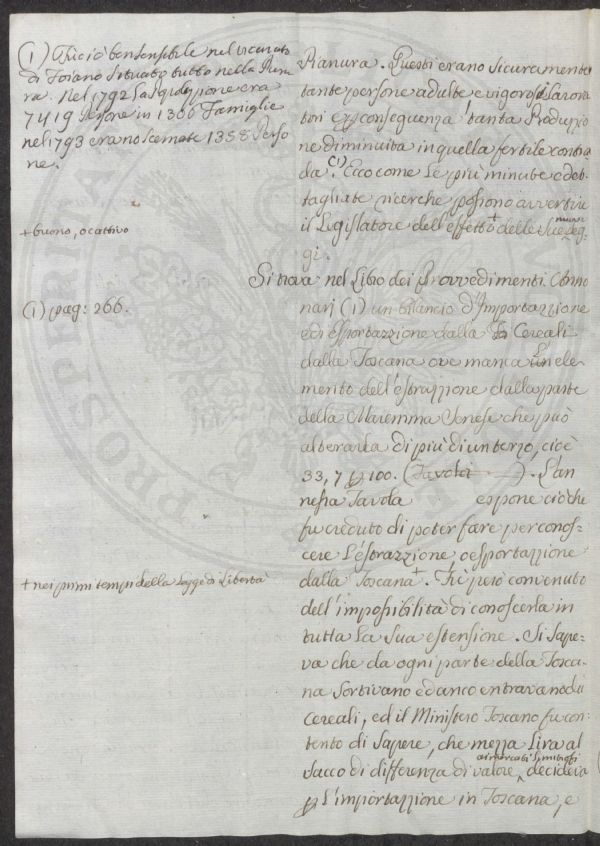 (1) Fù ciò ben sensibile nel vicariato
di Foiano situato tutto nella Pianu
ra. Nel 1792 la Popolazione era
7419 Persone in 1300 Famiglie
nel 1793 erano scemate 1358 Perso
ne.
+ buono, o cattivo
(1) pag: 266.
+ nei primi tempi della Legge di Libertà
Pianura. Questi erano sicuramente
tante persone adulte e vigorosi lavora
tori e p conseguenza tanta Produzio
ne diminuita in quella fertile contra
da (1). Ecco come le più minute e det
tagliate ricerche possono avvertire
il Legislatore dell'effetto + delle sue
nuove
Leg
gi.
Si trova nel Libro dei Provvedimenti Anno
narj (1) un bilancio d'Importazione
ed Esportazione dalla Cereali
dalla Toscana ove manca un ele
mento dell'estrazzione dalla parte
della Maremma Senese che può
alterarla di più di un terzo, cioè
33,7 p 100. (Tavola ). L'an
nessa Tavola espone ciò che
fu creduto di poter fare per conos
cere l'estrazzione o esportazzione
dalla Toscana +. Fù però convenuto
dell'impossibilità di conoscerla in
tutta la sua estensione. Si sape
va che da ogni parte della Tosca
na sortivano ed anco entravano dei
cereali, ed il Ministero Toscano fu con
tento di sapere, che mezza lira al
sacco di differenza di valore
ai mercati limitrofi
decideva
p l'importazzione in Toscana, e